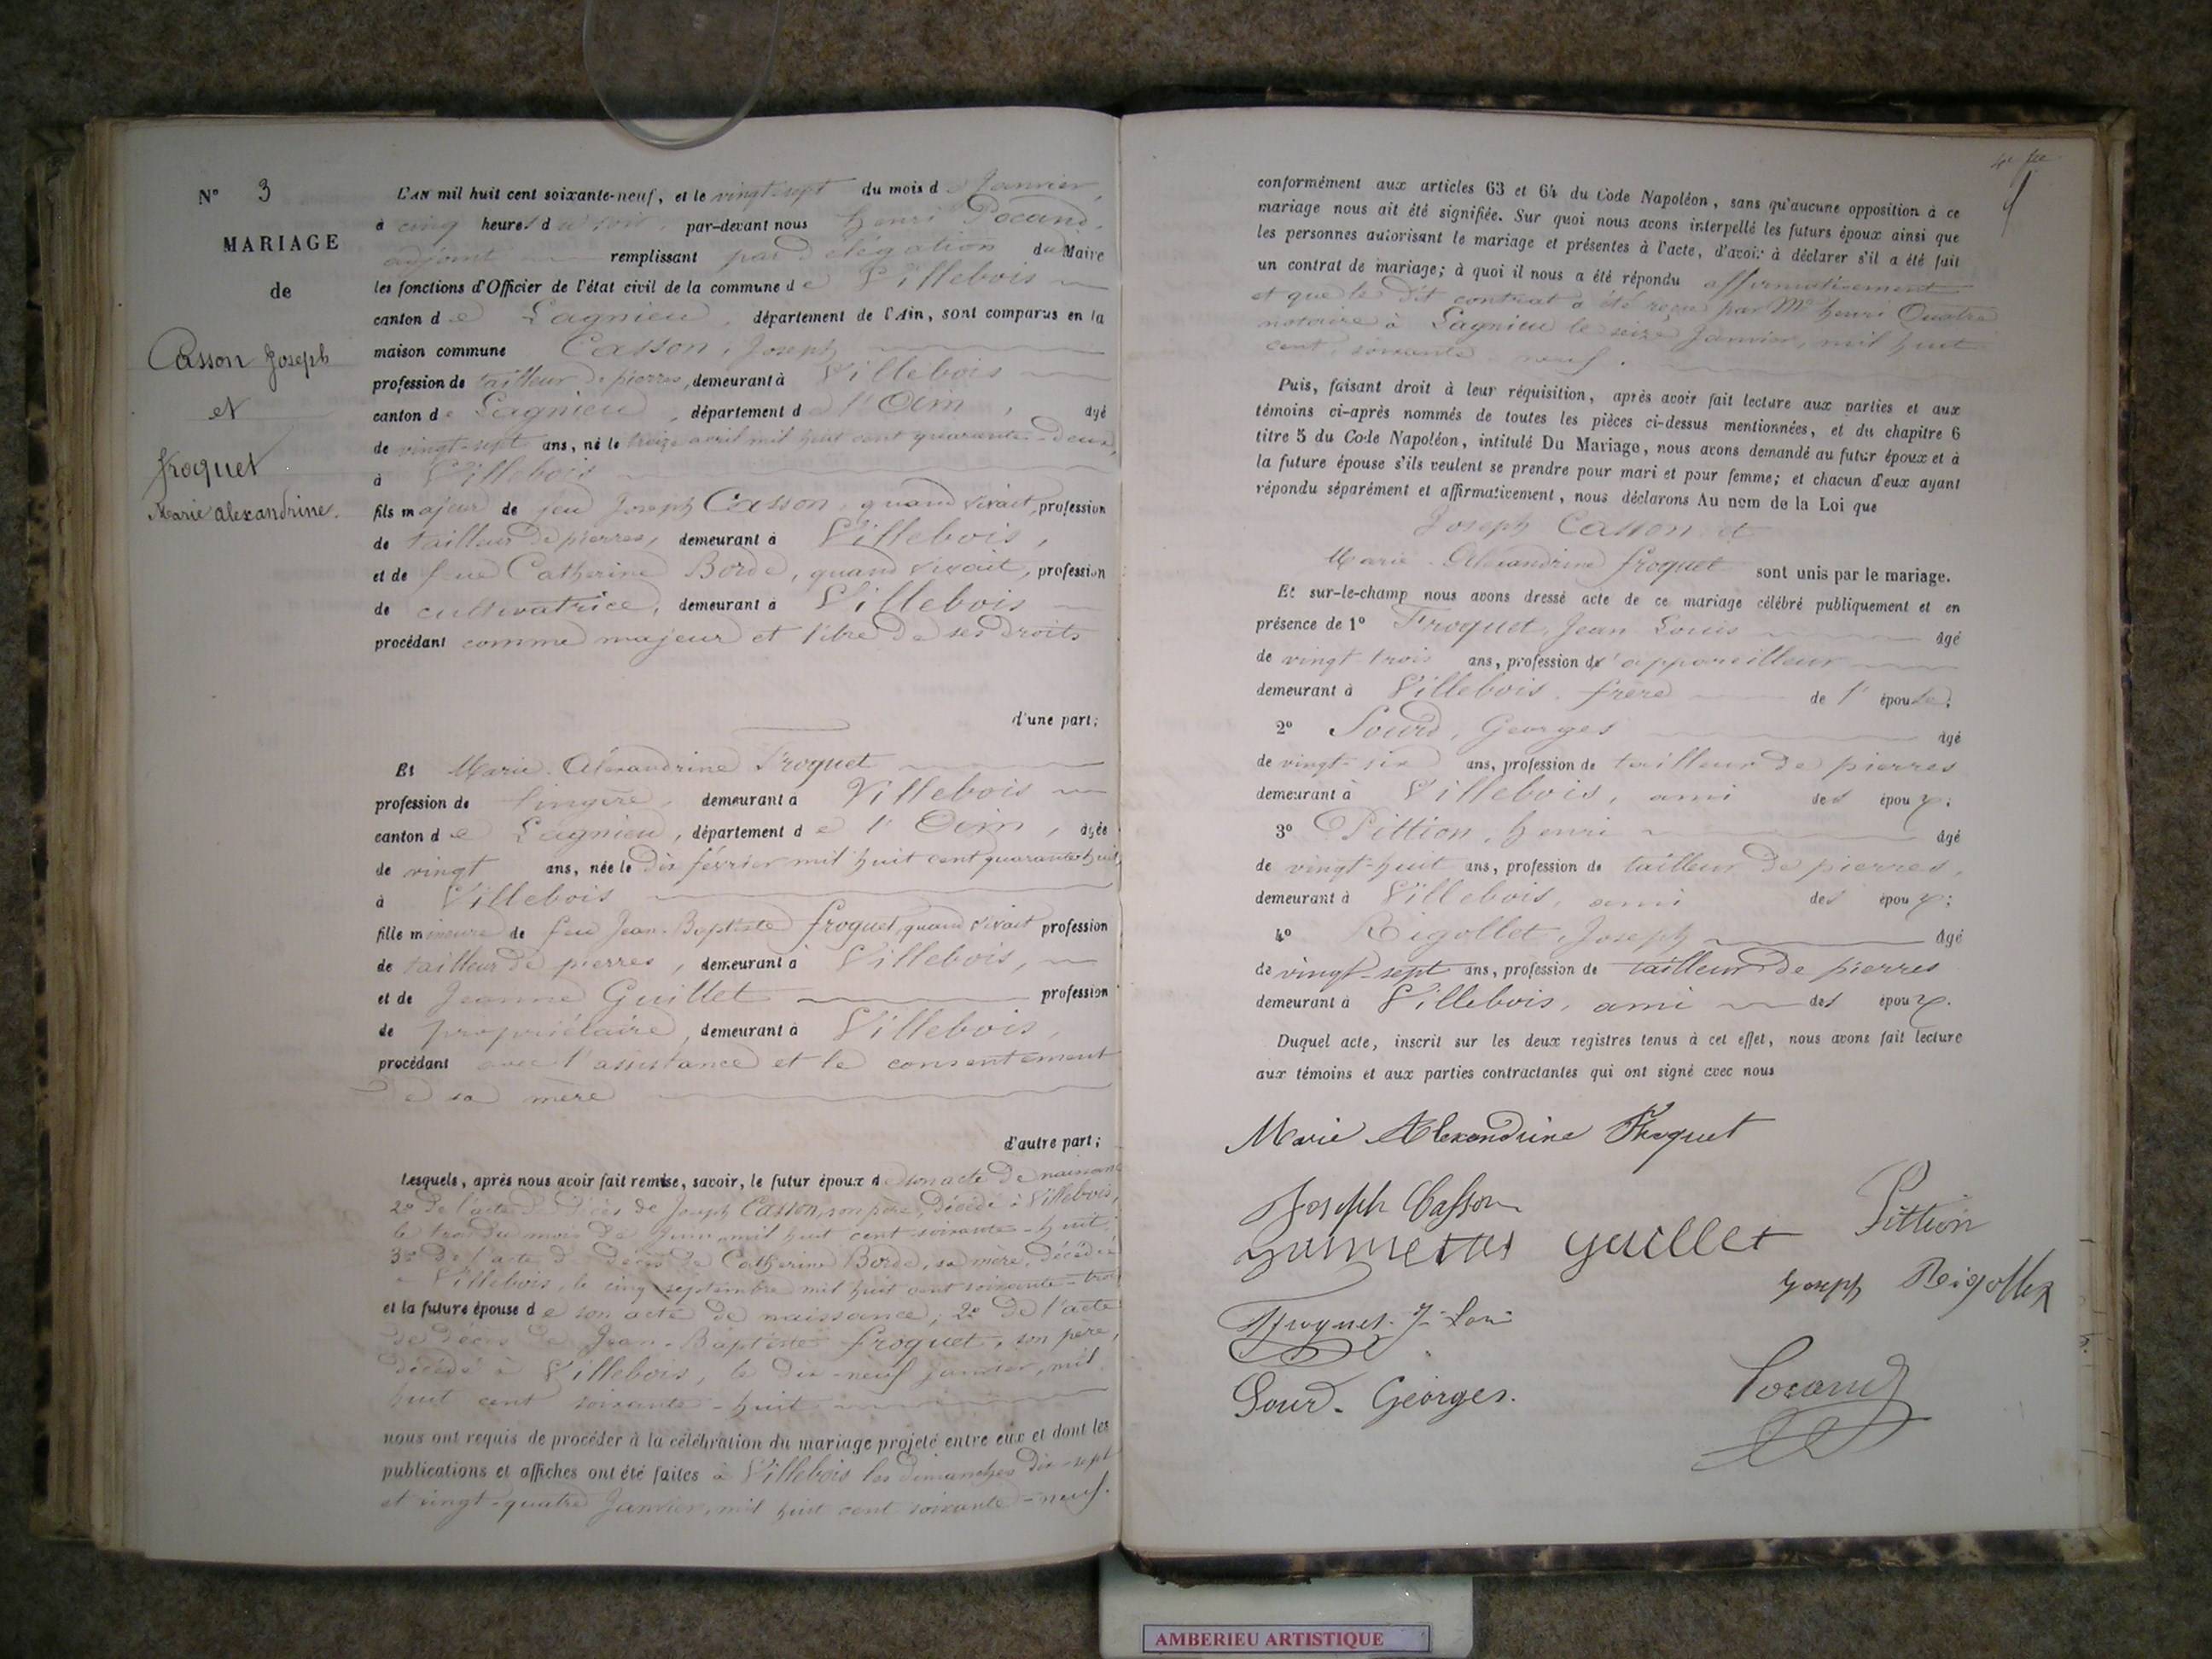 N° 3
MARIAGE
de
Casson Joseph
et
froquet
Marie alexandrine.
L'AN mil huit cent soixante-neuf, et le vingt-sept du mois de Janvier,
à cinq heures du soir, par-devant nous henri Pocand,
adjoint remplissant par délégation du Maire
les fonctions d'Officier de l'état civil de la commune de Villebois
canton de Lagnieu, département de l'Ain, sont comparus en la
maison commune Casson, Joseph
profession de tailleur de pierres, demeurant à Villebois
canton de Lagnieu, département de l'Ain, âgé
de vingt-sept ans, né le treize avril mil huit cent quarante-deux,
à Villebois
fils majeur de feu Joseph Casson, quand vivait, profession
de tailleur de pierres, demeurant à Villebois,
et de feue Catherine Borde, quand vivait, profession
de cultivatrice, demeurant à Villebois
procédant comme majeur et libre de ses droits
d'une part;
Et Marie-Alexandrine Froquet
profession de lingère, demeurant à Villebois
canton de Lagnieu, département de l'Ain, âgée
de vingt ans, née le dix février mil huit cent quarante huit,
à Villebois
fille mineure de feu Jean-Baptiste froquet, quand vivait profession
de tailleur de pierres, demeurant à Villebois,
et de Jeanne Guillet profession
de propriétaire, demeurant à Villebois,
procédant avec l'assistance et le consentement
de sa mère
d'autre part;
Lesquels, après nous avoir fait remise, savoir, le futur époux de son acte de naissance
2° de l'acte de décès de Joseph Casson, son père, décédé à Villebois,
le trois du mois de Juin mil huit cent soixante-huit;
3° de l'acte de décès de Catherine Borde, sa mère, décédée
à Villebois, le cinq septembre mil huit cent soixante-trois
et la future épouse de son acte de naissance; 2° de l'acte
de décès de Jean-Baptiste froquet, son père,
décédé à Villebois, le dix-neuf janvier, mil
huit cent soixante-huit
nous ont requis de procéder à la célébration du mariage projeté entre eux et dont les
publications et affiches ont été faites à Villebois les dimanches dix-sept
et vingt-quatre Janvier, mil huit cent soixante-neuf.
conformément aux articles 63 et 64 du Code Napoléon, sans qu'aucune opposition à ce
mariage nous ait été signifiée. Sur quoi nous avons interpellé les futurs époux ainsi que
les personnes autorisant le mariage et présentes à l'acte, d'avoir à déclarer s'il a été fait
un contrat de mariage; à quoi il nous a été répondu affirmativement
et que le dit contrat a été reçu par Me henri Quatre
notaire à Lagnieu le seize Janvier, mil huit
cent soixante neuf.
Puis, faisant droit à leur réquisition, après avoir fait lecture aux parties et aux
témoins ci-après nommés de toutes les pièces ci-dessus mentionnées, et du chapitre 6
titre 5 du Code Napoléon, intitulé Du Mariage, nous avons demandé au futur époux et à
la future épouse s'ils veulent se prendre pour mari et pour femme; et chacun d'eux ayant
répondu séparément et affirmativement, nous déclarons Au nom de la Loi que
Joseph Casson et
Marie-Alexandrine froquet sont unis par le mariage.
Et sur-le-champ nous avons dressé acte de ce mariage célébré publiquement et en
présence de 1° Froquet, Jean Louis âgé
de vingt trois ans, profession d'appareilleur
demeurant à Villebois. frère de l'épouse;
2° Sourd, Georges âgé
de vingt-six ans, profession de tailleur de pierres
demeurant à Villebois, ami des époux;
3° Pittion, henri âgé
de vingt-huit ans, profession de tailleur de pierres,
demeurant à Villebois, ami des époux;
4° Rigollet, Joseph âgé
de vingt-sept ans, profession de tailleur de pierres
demeurant à Villebois, ami des époux.
Duquel acte, inscrit sur les deux registres tenus à cet effet, nous avons fait lecture
aux témoins et aux parties contractantes qui ont signé avec nous
Marie Alexandrine Froquet
Joseph Casson
guillet
Pittion
Joseph Rigollet
Froquet J-Loui
Sourd. Georges.
Pocand
AMBERIEU ARTISTIQUE